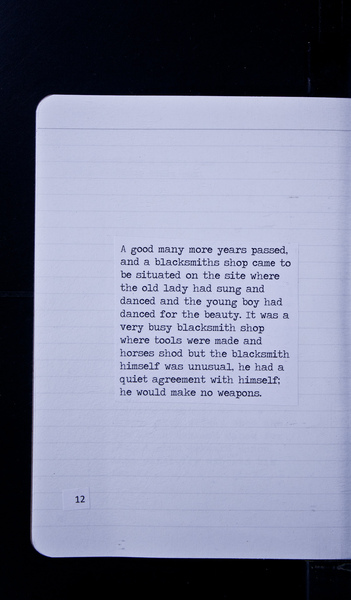 A good many more years passed,
and a blacksmiths shop came to
be situated on the site where
the old lady had sung and
danced and the young boy had
danced for the beauty. It was a
very busy blacksmith shop
where tools were made and
horses shod but the blacksmith
himself was unusual, he had a
quiet agreement with himself;
he would make no weapons.
12